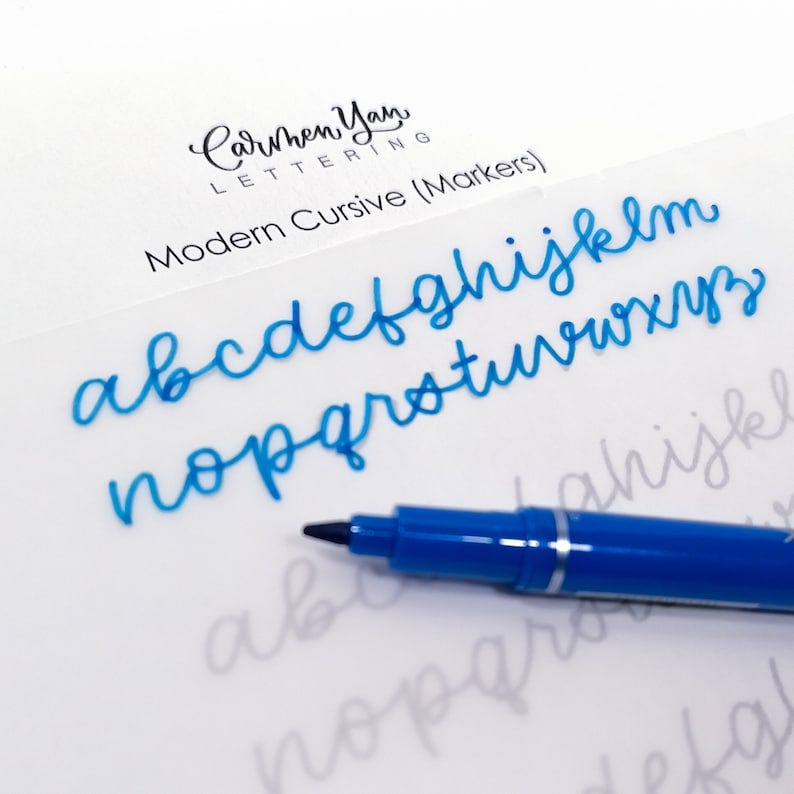 Carmen Yan
LETTERING
Modern Cursive (Markers)
abcdefghijklm
nopqrstuvwxyz
ghijkl
abc
nopqrs
defg